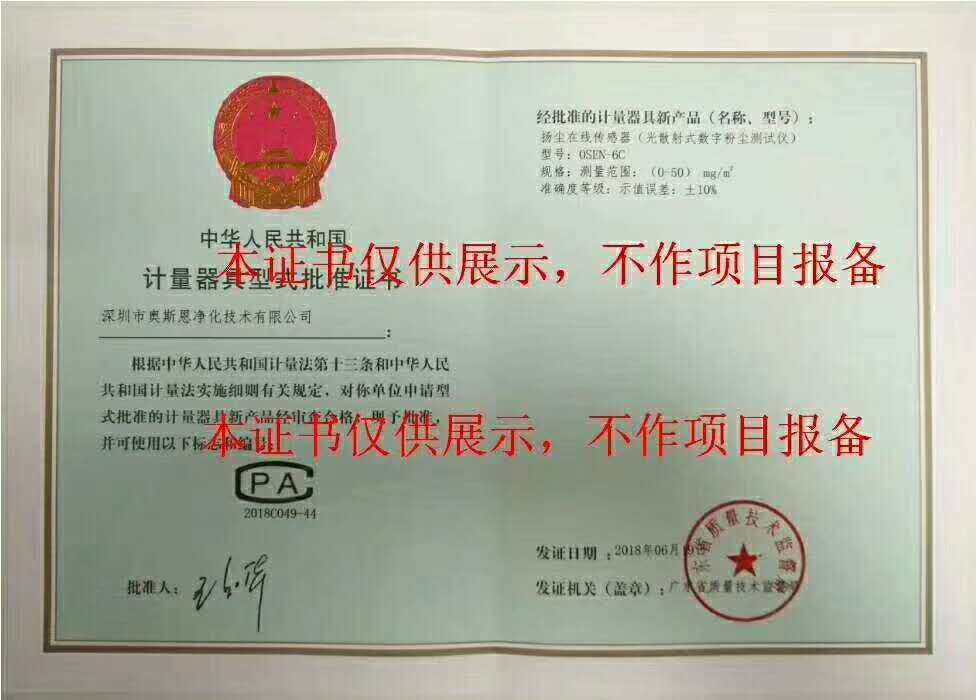 中华人民共和国
计量器具型式批准证书
深圳市奥斯恩净化技术有限公司
:
根据中华人民共和国计量法第十三条和中华人民
共和国计量法实施细则有关规定，对你单位申请型
式批准的计量器具新产品经审查合格，现予批准，
并可使用以下标志和编号
PA
2018C049-44
批准人：
经批准的计量器具新产品（名称、型号）：
扬尘在线传感器（光散射式数字粉尘测试仪）
型号：OSEN-6C
规格：测量范围：（0-50） mg/m³
准确度等级：示值误差：±10%
本证书仅供展示，不作项目报备
本证书仅供展示，不作项目报备
发证日期：2018年06月
发证机关（盖章）：广东省质量技术监督局
东省质量技术监督